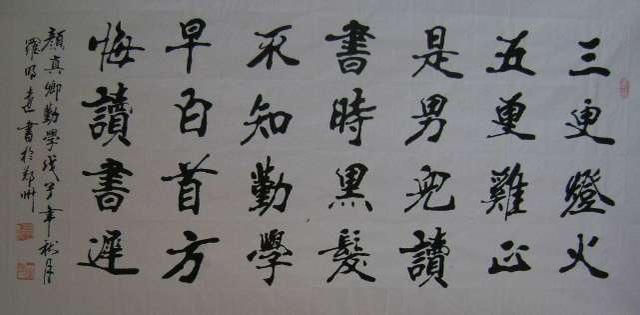 三更燈火
五更雞正
是男兒讀
書時黑髮
不知勤學
早白首方
悔讀書遲
顏真卿勤學戊子年秋月
羅明書於郑州